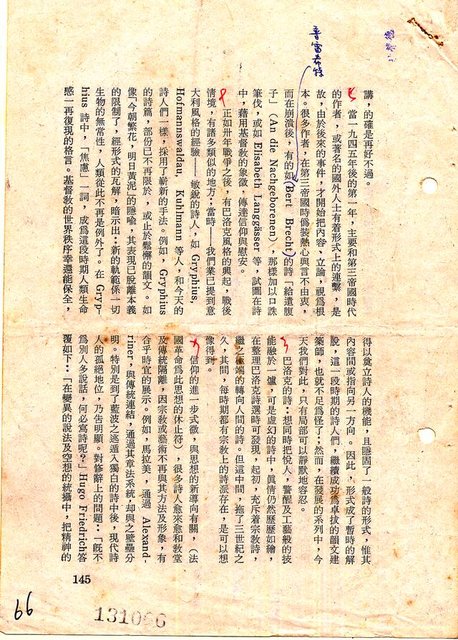 講，的確是再好不過。
當一九四五年後的第一年，主要和第三帝國時代
的作者，或著名的國外人士有着形式上的連繫，是
故，由於後來的事件，才開始把內容、立論，視爲根
本。很多作者，在第三帝國時僞裝熱心與言不由衷，
而在崩潰後，有的如（Bert Brecht）的詩「給遺腹
子」（An die Nachgeborenen），那樣加以口誅
筆伐，或如 Elisabeth Langgässer 等，試圖在詩
中，藉用基督教的象徵，傳達信仰與慰安。
正如卅年戰爭之後，有巴洛克風格的興起，戰後
情境，有諸多類似的地方：當時——我們業已提到意
大利風格的經驗——敏銳的詩人，如 Gryphius,
Hofmannswaldau, Kuhlmann 等人，和今天的
詩人們一樣，採用了嶄新的手法。例如，Gryphius
的詩篇，部份已不再限於，或止於鬆懈的韻文。如
像「今朝繁花，明日黃泥」的隱喻，其表現已脫離本義
的限制了，經形式的瓦解，暗示出：新的軌範係一切
生物的無常性，人類從此不再是例外了。在 Gryp-
hius 詩中，「焦慮」一詞，成爲這段時期人類生命
感一再復現的格言。基督教的世界秩序幸還能保全，
得以奠立詩人的機能，且鞏固了一般詩的形式，惟其
內容間或指向另一方向。因此，形式成了暫時的解
說，這一段時期的詩人們，繼續成功爲卓拔的韻文建
築師，也就不足爲怪了；然而，在發展的系列中，今
天我們對此，只有局部可以靜默地容忍。
巴洛克的詩：想同時把悅人，警醒及工藝般的技
能融於一爐，可是虛幻的詩中，眞情仍然歷歷如繪，
在整理巴洛克詩選時可發現，起初，充斥着宗教詩，
繼之極端的轉向人間的詩。但這中間，拖了三世紀之
久，其間，每時期都有宗教上的詩派存在，是可以想
像得到。
信仰的進一步式微，與思想的新導向有關，（法
國革命爲此思想的休止符），很多詩人愈來愈和敎堂
及傳統隔離，因宗敎或藝術不再與其方法及形象，有
合乎時宜的展示。例如，馬拉美，通過 Alexand-
riner, 與傳統連結，通過其章法系統，却與之壁壘分
明。特別是到了藍波之逃遁入獨白的詩中後，現代詩
人的孤絕地位，乃告明顯。對修辭上的問題：「旣不
爲別人多說話，何必寫詩呢？」Hugo Friedrich答
覆如下：「在變異的說法及空想的統攝中，把精神的
145
66
131066